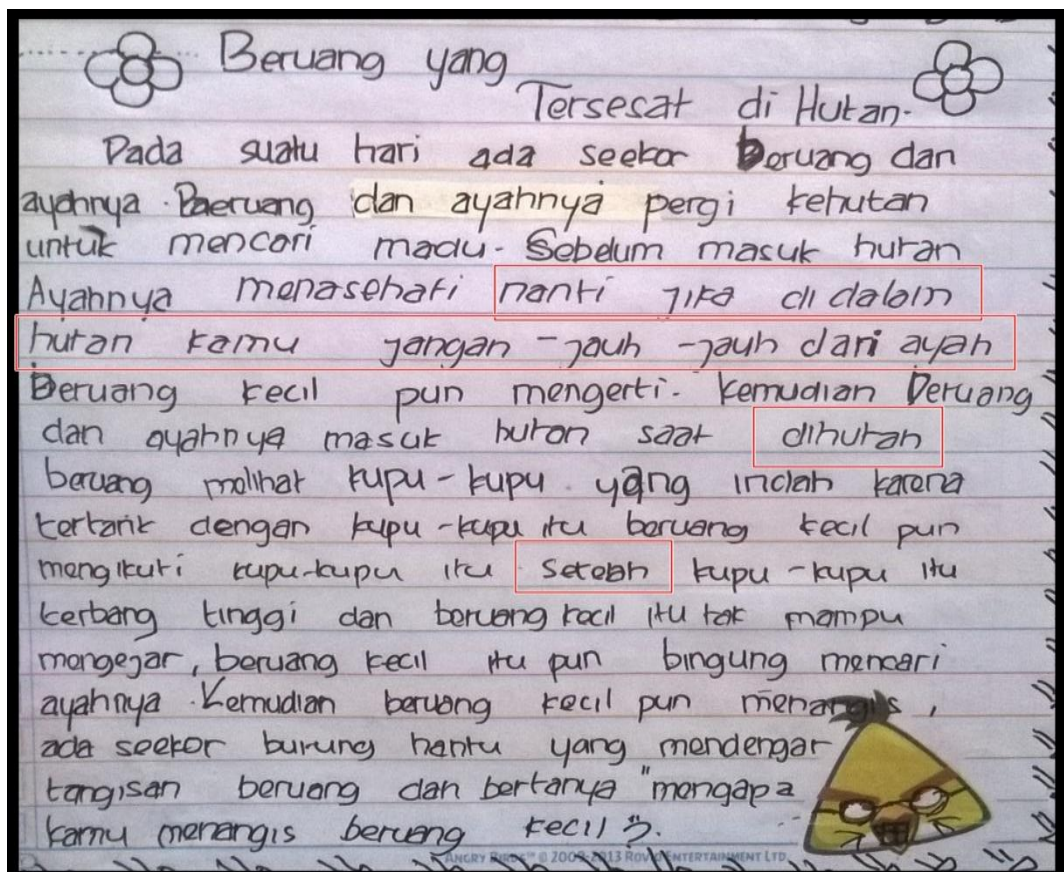 Beruang yang
Tersesat di Hutan.
Pada suatu hari ada seekor Beruang dan
ayahnya. Baeruang dan ayahnya pergi kehutan
untuk mencari madu. Sebelum masuk hutan
Ayahnya menasehati nanti jika di dalam
hutan kamu jangan -jauh -jauh dari ayah
Beruang kecil pun mengerti. kemudian Beruang
dan ayahnya masuk hutan saat dihutan
beruang melihat kupu-kupu yang indah karena
tertarik dengan kupu-kupu itu beruang kecil pun
mengikuti kupu-kupu itu. Setelah kupu-kupu itu
terbang tinggi dan beruang kecil itu tak mampu
mengejar, beruang kecil itu pun bingung mencari
ayahnya. Kemudian beruang kecil pun menangis,
ada seekor burung hantu yang mendengar
tangisan beruang dan bertanya "mengapa
kamu menangis beruang kecil?".
ANGRY BIRDS™ © 2009-2013 ROVIO ENTERTAINMENT LTD.